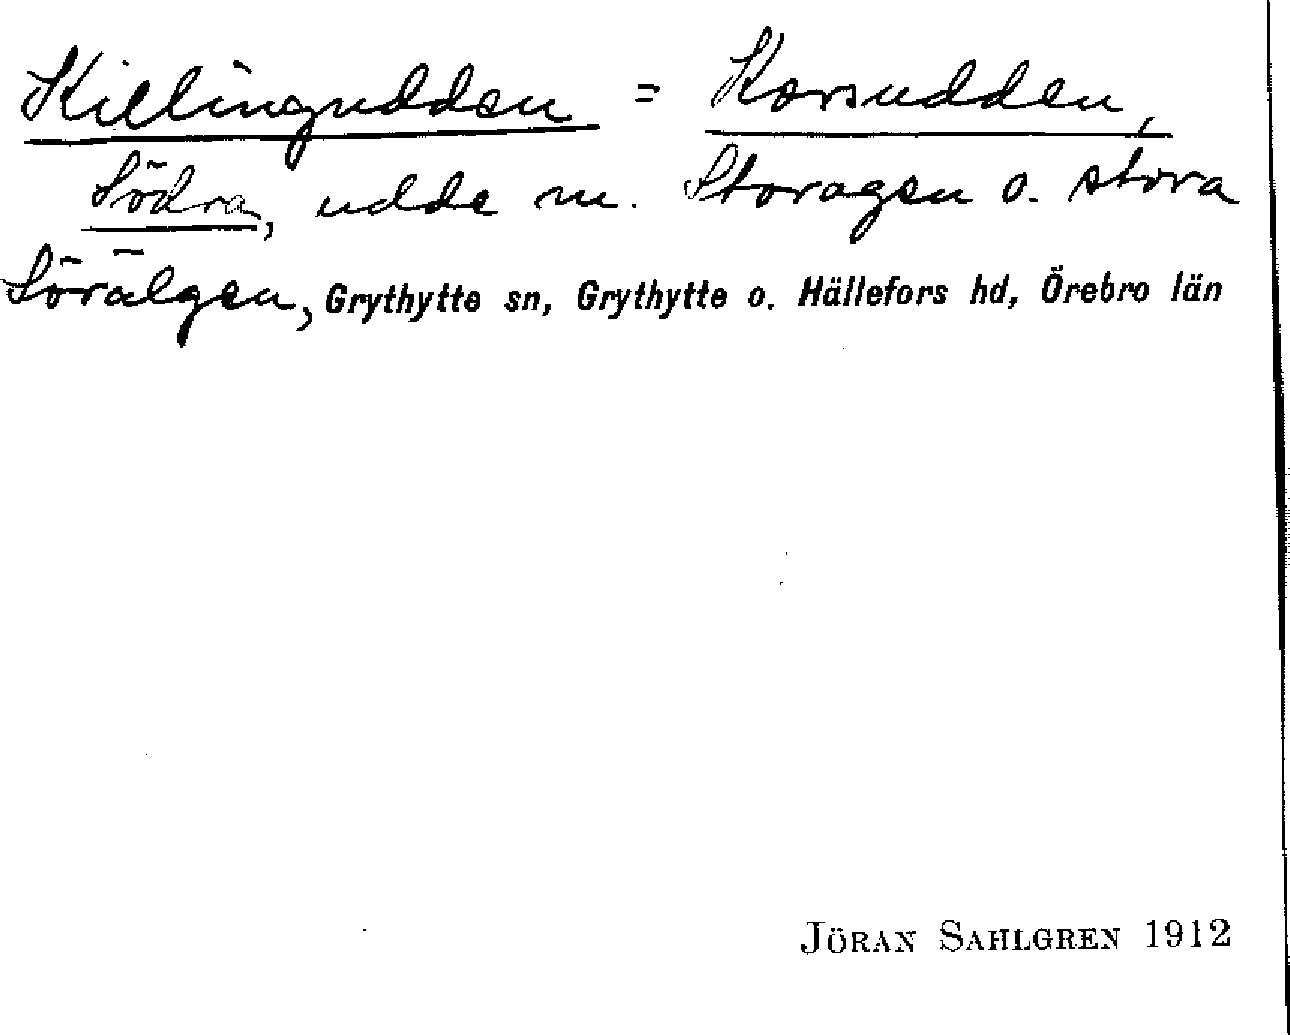 Killingudden = Korsudden,
Södra, udde m. Storagen o. stora
Sörälgen, Grythytte sn, Grythytte o. Hällefors hd, Örebro län
JÖRAN SAHLGREN 1912